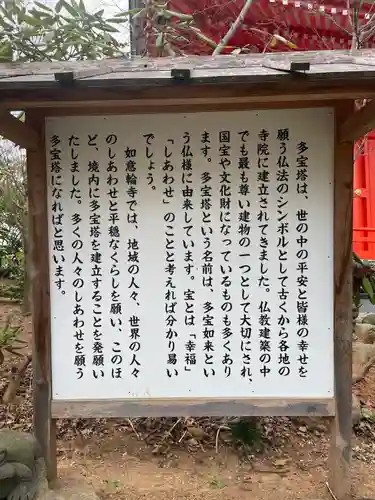 多宝塔は、世の中の平安と皆様の幸せを
願う仏法のシンボルとして古くから各地の
寺院に建立されてきました。仏教建築の中
でも最も尊い建物の一つとして大切にされ、
国宝や文化財になっているものも多くあり
ます。多宝塔という名前は、多宝如来とい
う仏様に由来しています。宝とは「幸福」
「しあわせ」のことと考えれば分かり易い
でしょう。
如意輪寺では、地域の人々、世界の人々
のしあわせと平穏なくらしを願い、このほ
ど、境内に多宝塔を建立することを発願い
たしました。多くの人々のしあわせを願う
多宝塔になればと思います。